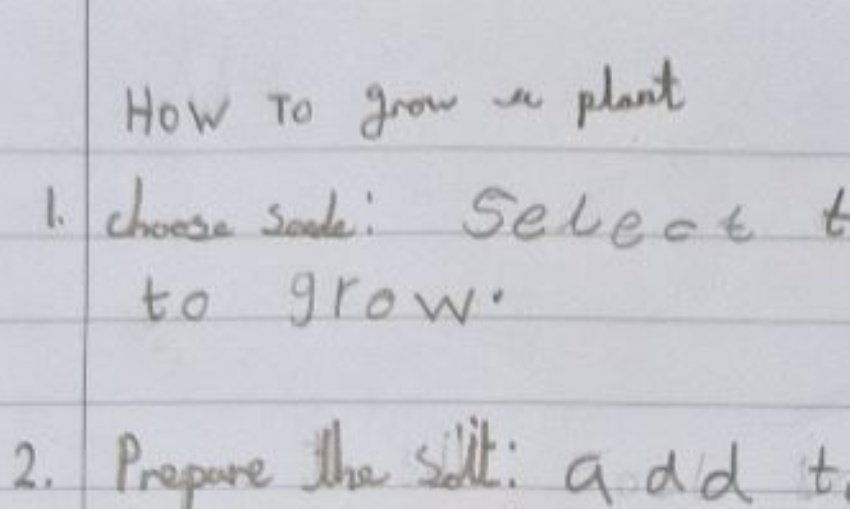 How To grow a plant
1. choose : Select t
to grow.
2. Prepare the : add t